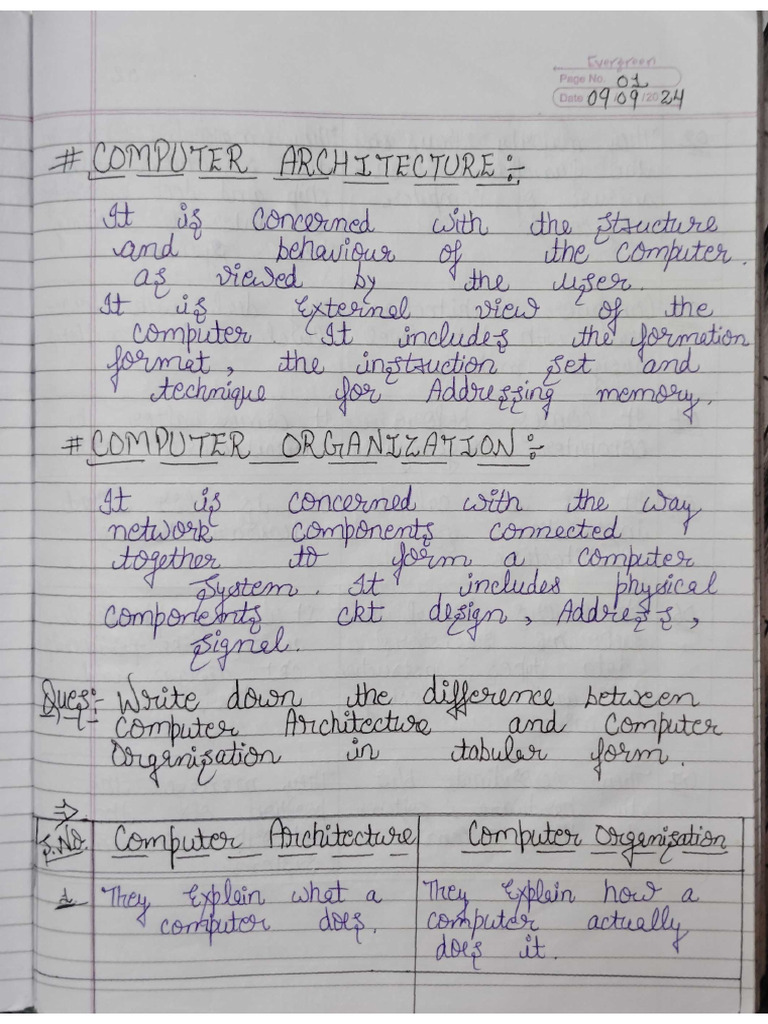 Evergreen
Page No. 01
Date 09/09/2024
# COMPUTER ARCHITECTURE :-
It is concerned with the structure
and behaviour of the computer.
as viewed by the user.
It is external view of the
computer It includes the formation
format, the instruction set and
technique for Addressing memory.
# COMPUTER ORGANIZATION :-
It is concerned with the way
network components connected
together to form a computer
System. It includes physical
components ckt design, Address,
Signal.
Ques:- Write down the difference between
computer Architecture and Computer
Organisation in tabular form.
⇒
S.No. Computer Architecture Computer Organisation
1. They Explain what a They Explain how a
computer does. computer actually
does it.